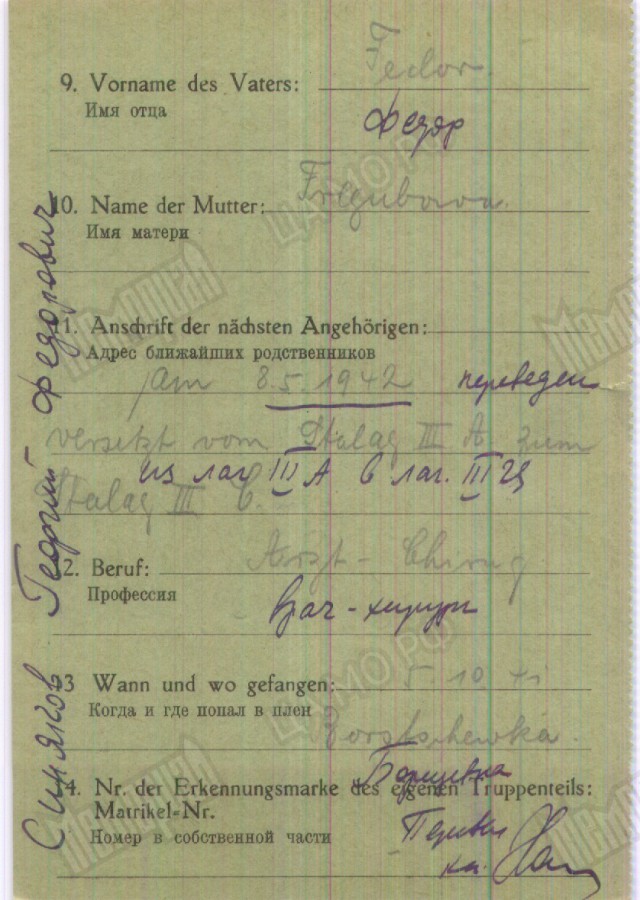 Fedor.
9. Vorname des Vaters:
Имя отца
Федор
10. Name der Mutter: Tregubowa.
Имя матери
11. Anschrift der nächsten Angehörigen:
Адрес ближайших родственников
Am 8.5.1942 переведен
versetzt vom Stalag III A zum
из лаг III А в лаг. III Ц
Stalag III C.
12. Beruf: Arzt - Chirurg
Профессия
Врач-хирург
13 Wann und wo gefangen: 5 10 41
Когда и где попал в плен
Borstschewka.
Борщевка
14. Nr. der Erkennungsmarke des eigenen Truppenteils:
Matrikel-Nr.
Номер в собственной части
Перевел
Синяков Георгий Федорович
Мемориал
ЦАМО РФ